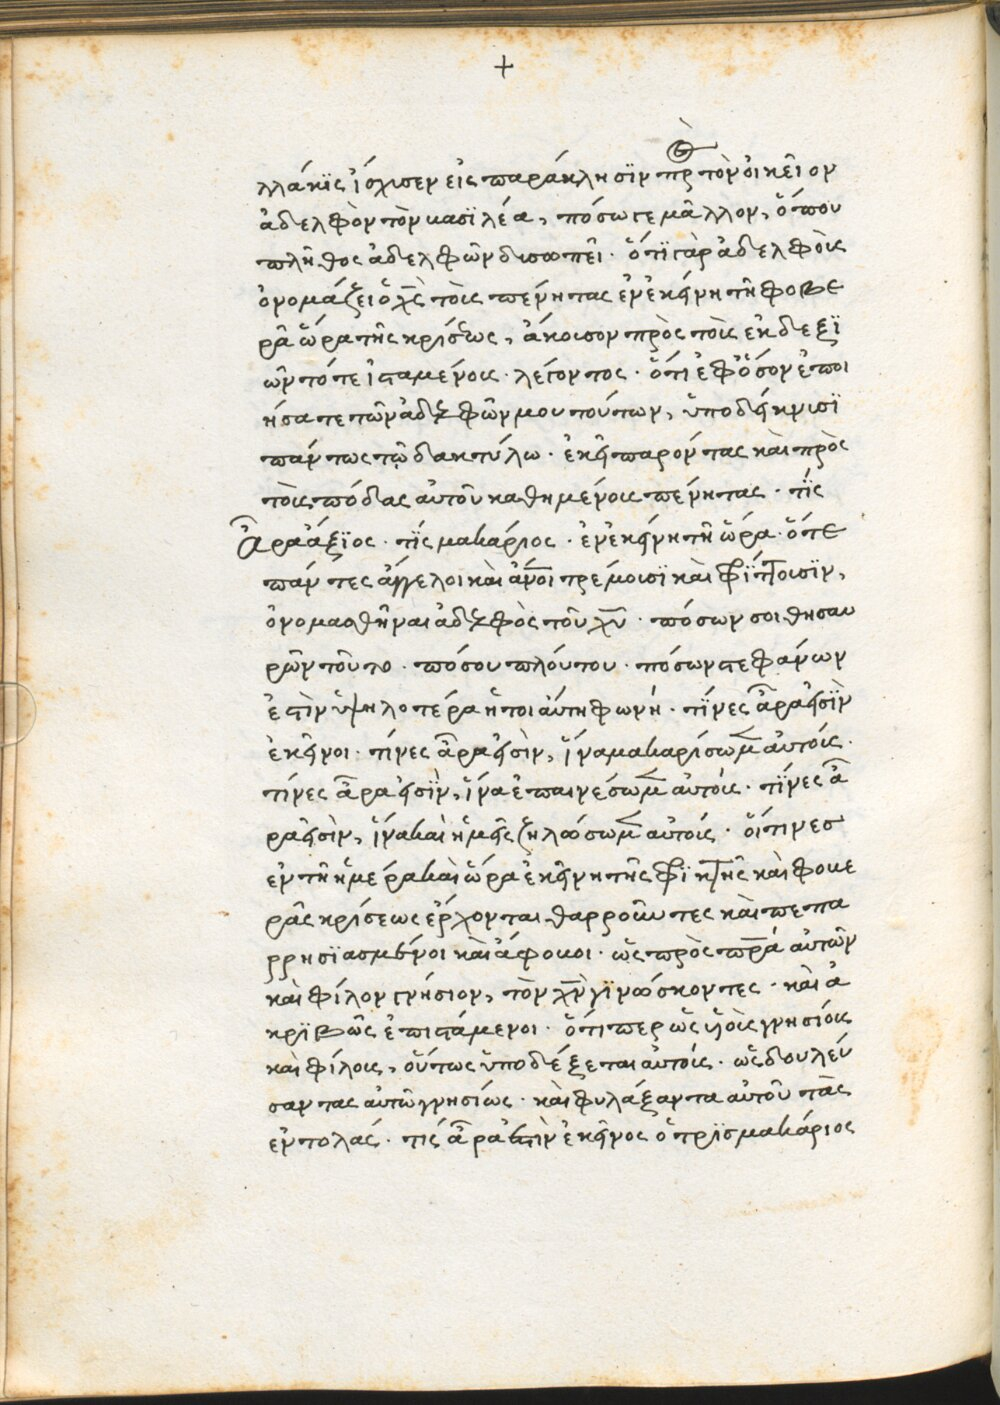 +
λλάκϊς ἰσχισεν εἰς παράκλησϊν πρ τὸν οἰκεῖον
ἀδελφὸν τὸν βασϊλέα, πόσω γε μᾶλλον, ὅπου
πλῆθος ἀδελφῶν δισωπεῖ · ὅτϊ γὰρ ἀδελφοὺς
ὀνομάζει ὁ χς τοὺς πένητας ἐν ἐκείνη τῆ φοβε
ρᾶ ὥρα τῆς κρίσεως, ἄκουσον πρὸς τοὺς ἐκ δεξϊ
ῶν τότε ἱσταμένους · λέγοντος · ὅτι ἐφ ὅσον ἐποι
ήσατε τῶν ἀδελφῶν μου τούτων, ὑποδείκνισϊ
πάντως τῷ δακτύλω · ἐκεῖ παρόντας καὶ πρὸς
τοὺς πόδας αὐτοῦ καθημένους πένητας · τίς
ἆρα ἄξϊος · τίς μακάριος · ἐν ἐκείνη τῆ ὥρα · ὅτε
πάντες ἄγγελοι καὶ ἄνοι τρέμουσϊ καὶ φρίττουσϊν,
ὀνομασθῆναι ἀδελφὸς τοῦ χυ · πόσων σοι θησαυ
ρῶν τοῦτο · πόσου πλούτου · πόσων στεφάνων
ἐστὶν ὑψηλοτέρα ἡ τοιαύτη φωνή · τίνες ἆρα εἰσϊν
ἐκεῖνοι · τίνες ἆρα εἰσὶν, ἵνα μακαρίσωμεν αὐτούς ·
τίνες ἆρα εἰσϊν, ἵνα ἐπαινέσωμεν αὐτούς · τίνες ἆ
ρα εἰσὶν, ἵνα καὶ ἡμεῖς ζηλώσωμεν αὐτούς · οἵτινεσ
ἐν τῆ ἡμέρα καὶ ὥρα ἐκείνη τῆς φρικτῆς καὶ φοβε
ρᾶς κρίσεως ἔρχονται θαρροῦντες καὶ πεπα
ρρησϊασμένοι καὶ ἄφοβοι · ὡς πρὸς πρα αὐτῶν
καὶ φίλον γνήσιον, τὸν χν γϊνώσκοντες · καὶ ἀ
κρϊβῶς ἐπιστάμενοι · ὅτι περ ὡς υἱοὺς γνησίους
καὶ φίλους, οὕτως ὑποδέξεται αὐτούς · ὡς δουλεύ
σαντας αὐτῶ γνησίως · καὶ φυλάξαντα αὐτοῦ τὰς
ἐντολάς · τίς ἆρα ἐστὶν ἐκεῖνος ὁ τρϊσμακάριος